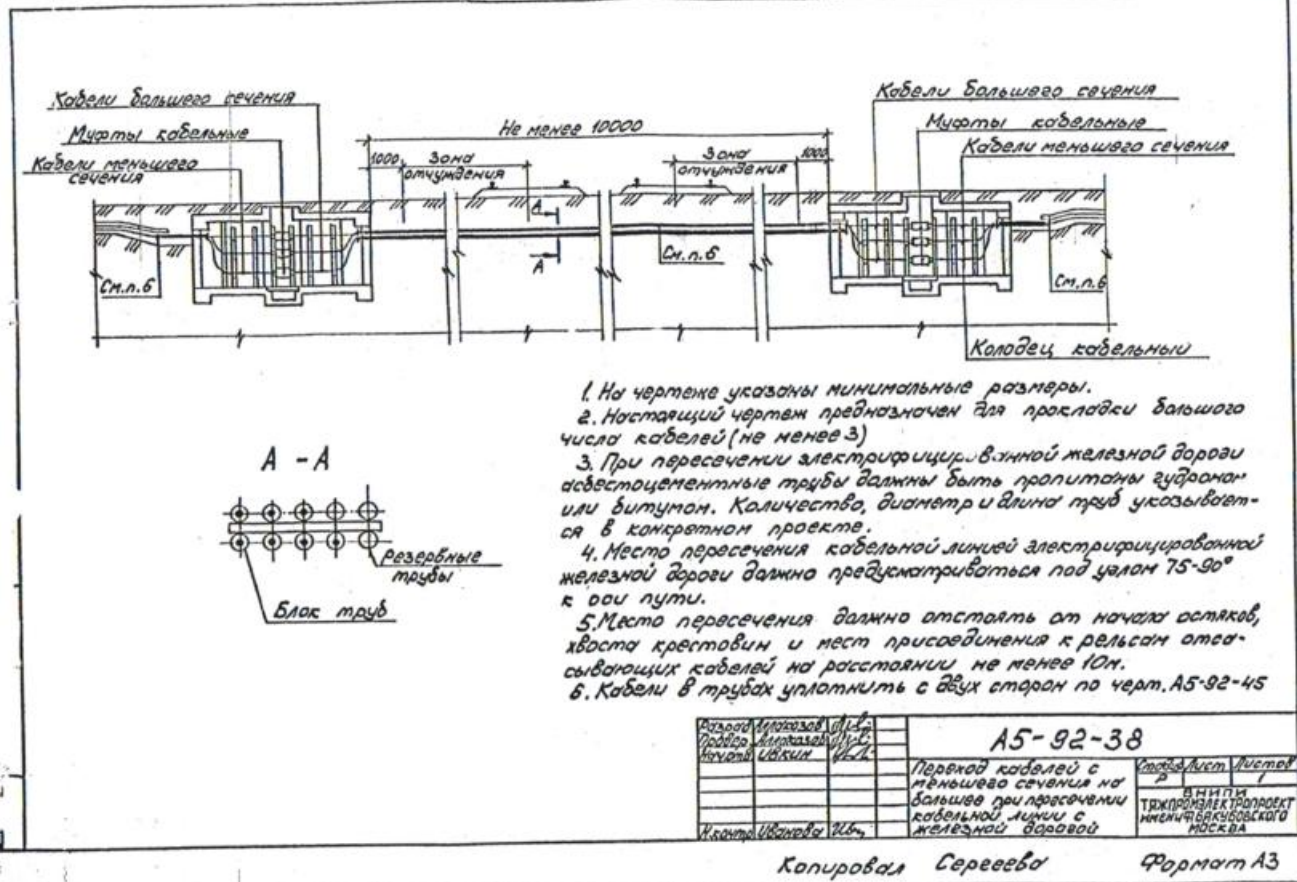 Кабели большего сечения
Муфты кабельные
Кабели меньшего
сечения
Не менее 10000
1000
Зона
отчуждения
Зона
отчуждения
1000
Кабели большего сечения
Муфты кабельные
Кабели меньшего сечения
А
А
См.п.6
См.п.6
См.п.6
Колодец кабельный
А - А
Резервные
трубы
Блок труб
1. На чертеже указаны минимальные размеры.
2. Настоящий чертеж предназначен для прокладки большого
числа кабелей (не менее 3)
3. При пересечении электрифицированной железной дороги
асбестоцементные трубы должны быть пропитаны гудроном
или битумом. Количество, диаметр и длина труб указывает-
ся в конкретном проекте.
4. Место пересечения кабельной линией электрифицированной
железной дороги должно предусматриваться под углом 75-90°
к оси пути.
5. Место пересечения должно отстоять от начала остяков,
хвоста крестовин и мест присоединения к рельсам отса-
сывающих кабелей на расстоянии не менее 10м.
6. Кабели в трубах уплотнить с двух сторон по черт. А5-92-45
Разраб
Провер
Ивкин
Н.контр Иванова
А5-92-38
Переход кабелей с
меньшего сечения на
большее при пересечении
кабельной линии с
железной дорогой
Стадия Лист Листов
Р 1
ВНИПИ
ТЯЖПРОМЭЛЕКТРОПРОЕКТ
ИМЕНИ Ф.Б.ЯКУБОВСКОГО
МОСКВА
Копировал Сергеева Формат А3